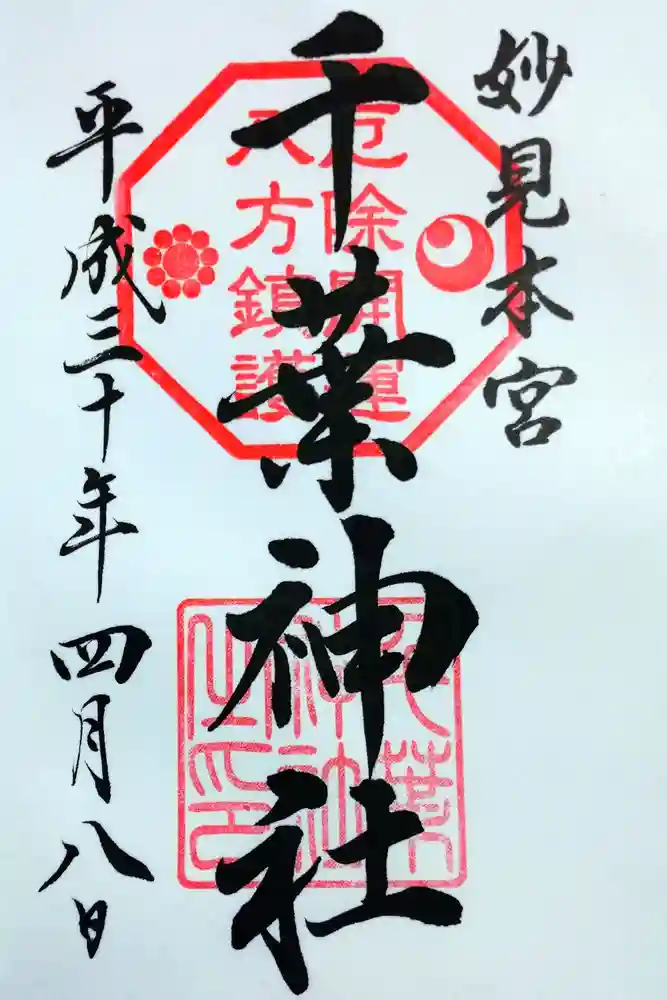 妙見本宮
千葉神社
厄除開運
八方鎮護
千葉
神社
之印
平成三十年四月八日